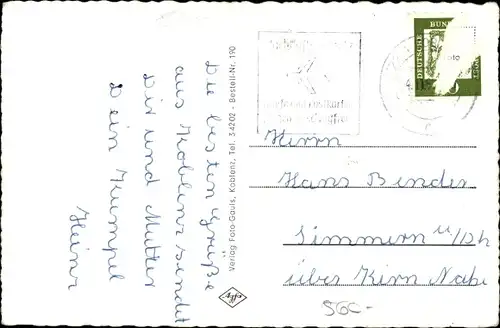 Die besten Grüße
aus Koblenz sendet
Dir und Mutter
Dein Kumpel
Heinz
Verlag Foto-Gauls, Koblenz, Tel. 34202 - Bestell-Nr. 190
effka
DEUTSCHE BUNDES
Herrn
Hans Binder
Simmern u/Dh
über Kirn Nahe
56C-